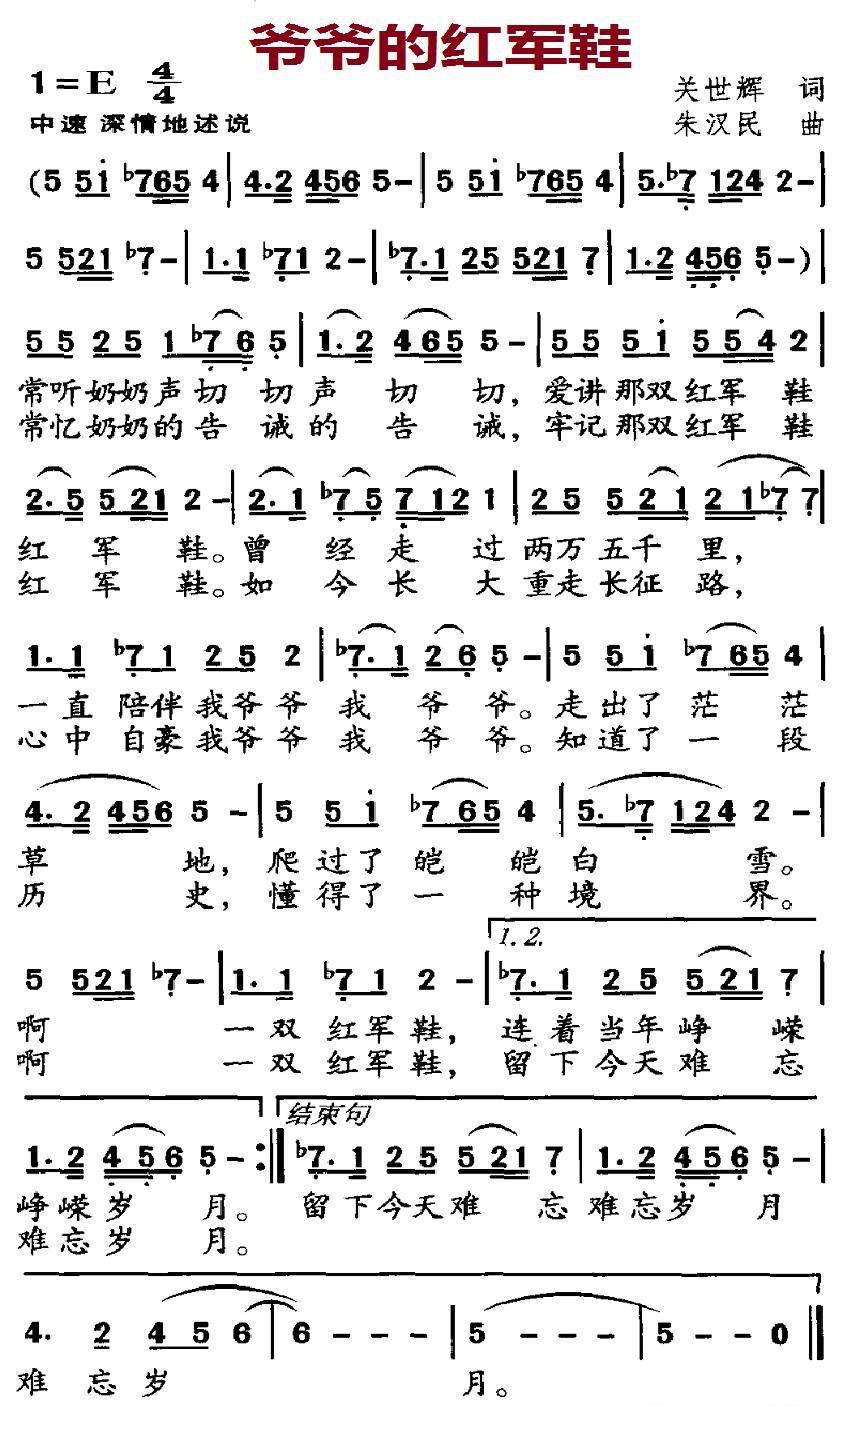 爷爷的红军鞋
1=E 4/4
关世辉 词
中速 深情地述说
朱汉民 曲
(5 51 ♭765 4 | 4.2 456 5- | 5 51 ♭765 4 | 5.♭7 124 2- |
5 521 ♭7- | 1.1 ♭71 2- | ♭7.1 25 521 7 | 1.2 456 5-) |
55 25 1♭76 5 | 1.2 465 5- | 55 51 554 2 |
常听奶奶声切 切声 切 切，爱讲那双红军 鞋
常忆奶奶的告 诫的 告 诫，牢记那双红军 鞋
2.5 521 2- | 2.1 ♭75 712 1 | 25 521 21♭7 7 |
红 军 鞋。曾 经走 过两万五千 里，
红 军 鞋。如 今长 大重走长征 路，
1.1 ♭71 25 2 | ♭7.1 26 5- | 5 51 ♭765 4 |
一直陪伴我爷爷 我 爷 爷。走出了茫 茫
心中自豪我爷爷 我 爷 爷。知道了一 段
4.2 456 5- | 5 51 ♭765 4 | 5.♭7 124 2- |
草 地，爬过了皑 皑白 雪。
历 史，懂得了一 种境 界。
1.2.
5 521 ♭7- | 1.1 ♭71 2- | ♭7.1 25 521 7 |
啊 一双红军鞋，连着当年峥 嵘
啊 一双红军鞋，留下今天难 忘
结束句
1.2 456 5- :‖ ♭7.1 25 521 7 | 1.2 456 5- |
峥嵘岁 月。留下今天难 忘难忘岁 月
难忘岁 月。
4. 2 45 6 | 6 - - - | 5 - - - | 5 - - 0 ‖
难 忘岁 月。